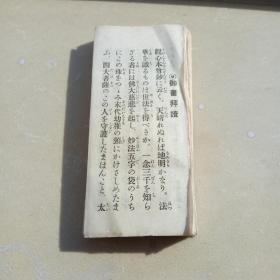 御書拜讀
觀心本尊鈔に云く、天晴れぬれば地明かなり。法
華を識るものは世法を得べきか。一念三千を知ら
ざる者には佛大慈悲を起し、妙法五字の袋のうち
にこの珠をつゝみ末代幼稚の頸にかけさしめたま
ふ、四大菩薩のこの人を守護したまはんこと、太